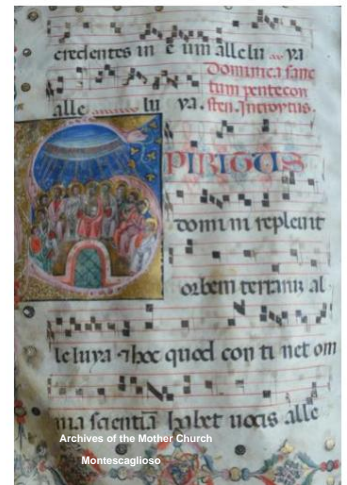 credentes in e um allelu ya
Dominica sanc
tum pentecon
alle lu ya. sten. Introytus.
SPIRITUS
domini replevit
orbem terrarum al
leluya. hoc quod con ti net om
nia scientiā habet vocis alle
Archives of the Mother Church
Montescaglioso